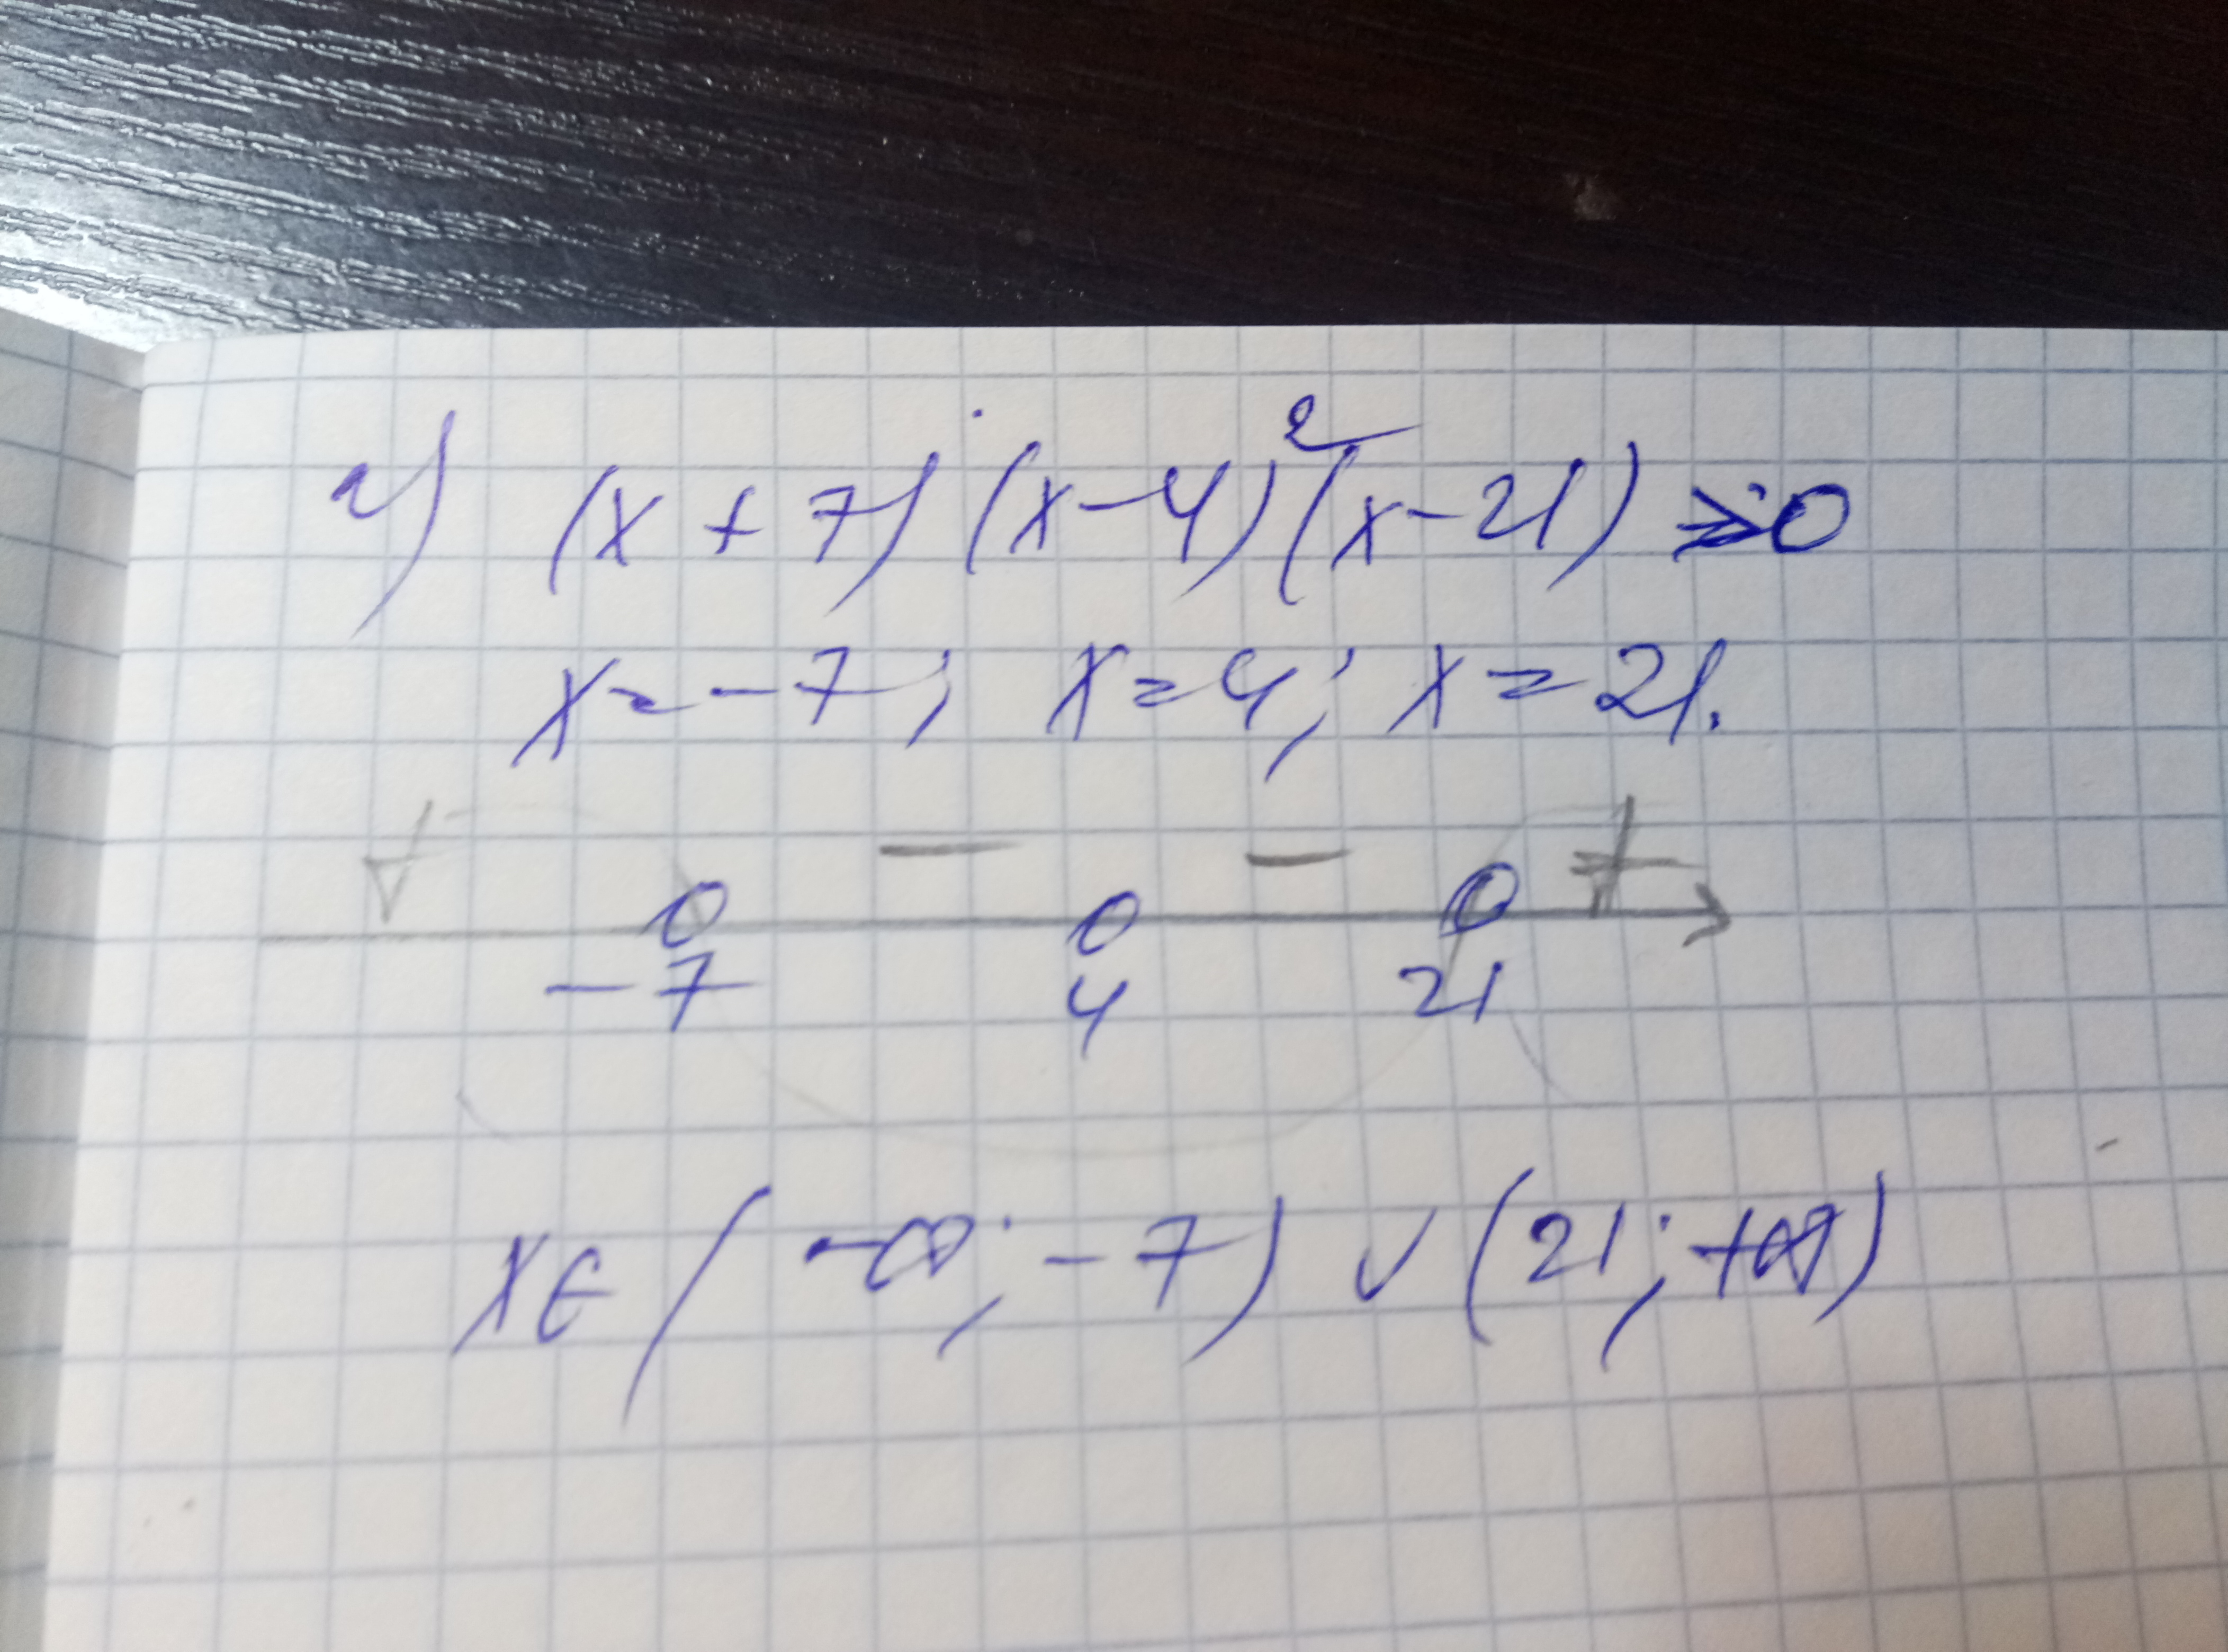 г) (x + 7)(x - 4)²(x - 21) ⩾ 0
x = -7; x = 4; x = 21.
- - +
-7 4 21
x ∈ (-∞; -7) ∪ (21; +∞)